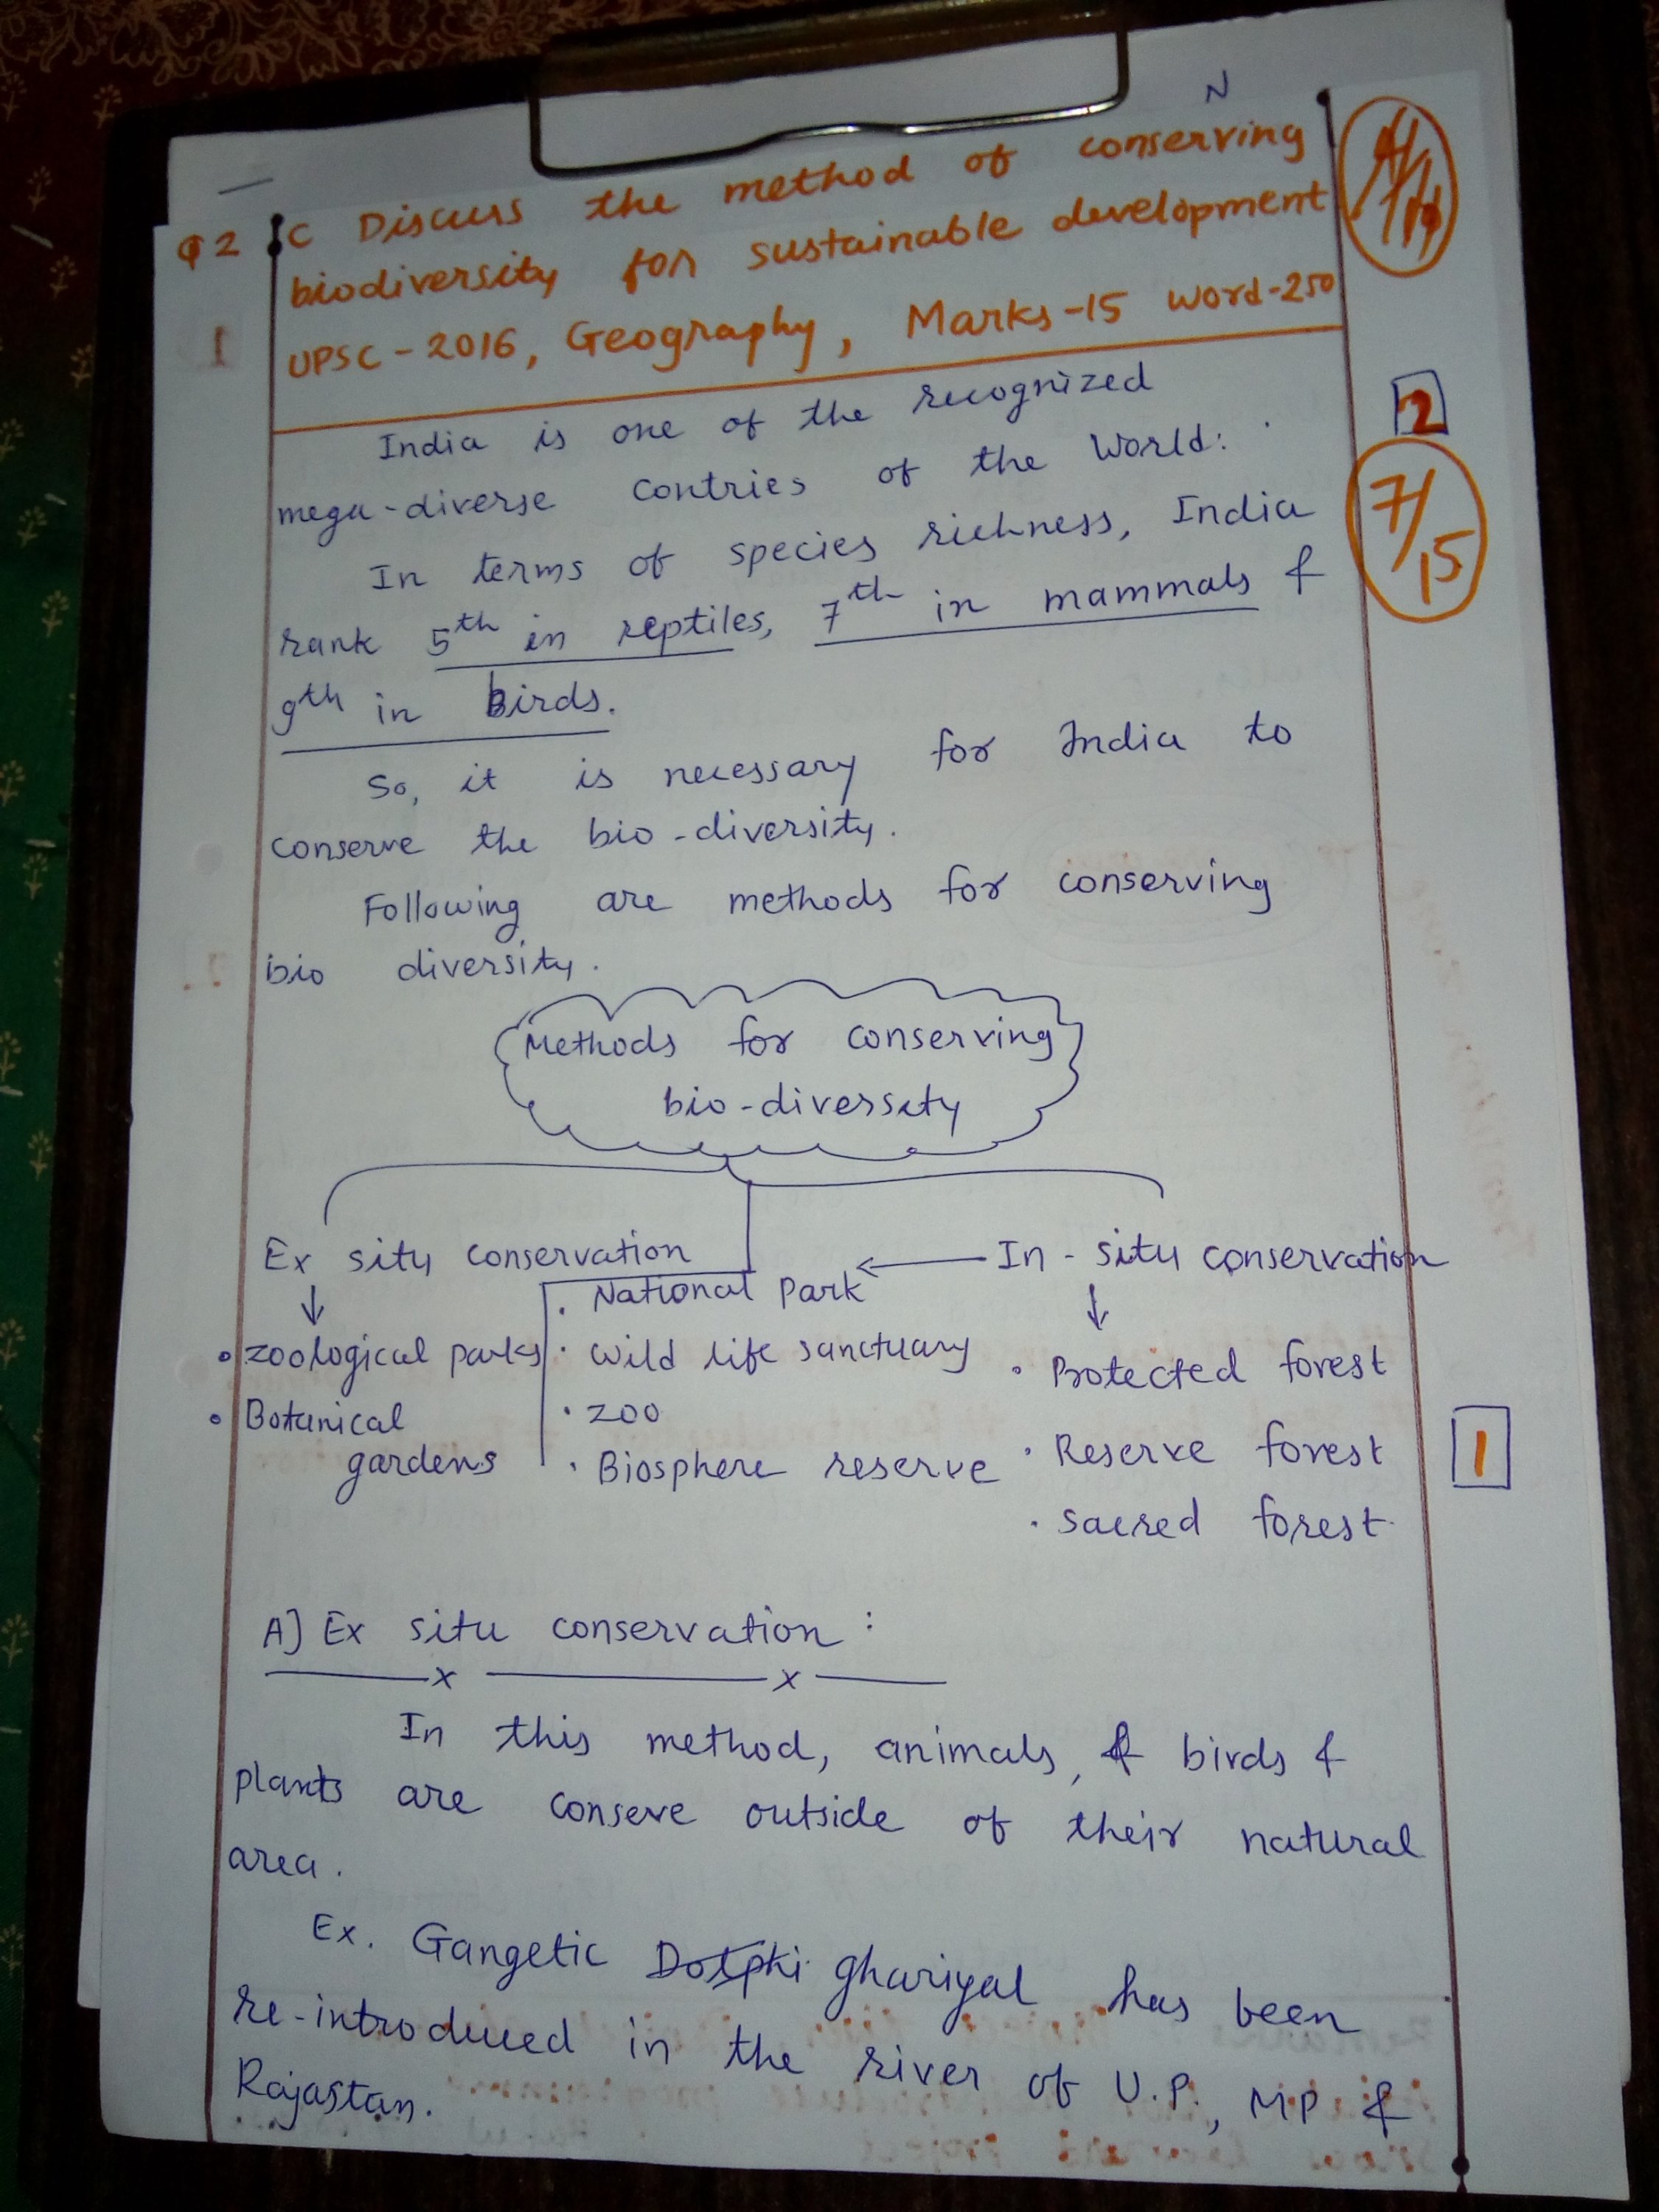 N
Q2 C Discuss the method of conserving
biodiversity for sustainable development
1 UPSC - 2016, Geography, Marks -15 word-250
India is one of the recognized
mega-diverse contries of the World:
2
In terms of species richness, India
7/15
rank 5th in reptiles, 7th in mammals &
9th in Birds.
So, it is necessary for India to
conserve the bio-diversity.
Following are methods for conserving
bio diversity.
Methods for conserving
bio-diversety
Ex situ conservation
• zoological parks
• Botanical
gardens
• National Park
• Wild life sanctuary
• zoo
• Biosphere reserve
In-situ conservation
• Protected forest
• Reserve forest
• Sacred forest
1
A] Ex situ conservation :
In this method, animals, & birds &
plants are conseve outside of their natural
area.
Ex. Gangetic ghariyal has been
re-introduced in the river of U.P., MP &
Rajastan.